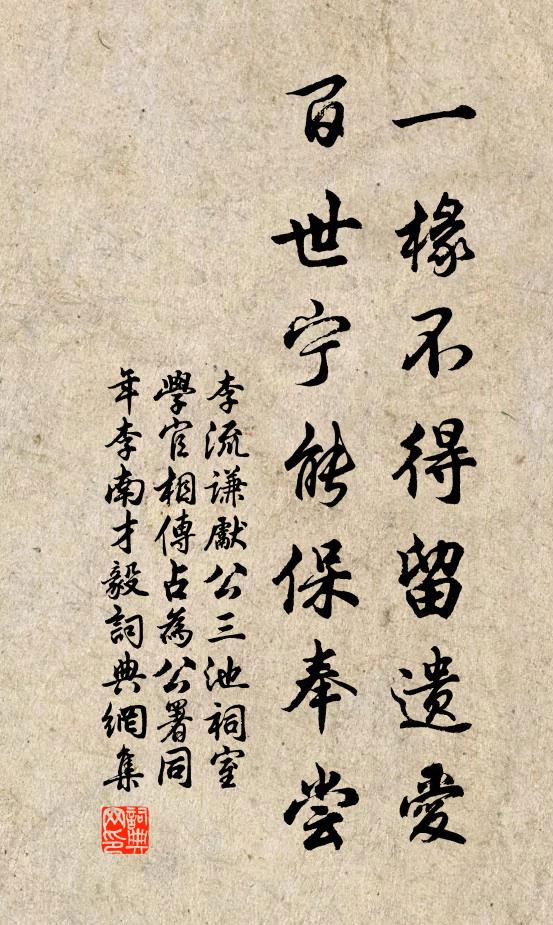 一椽不得留遗爱
百世宁能保奉尝
李流謙獻公三池祠室
學官相傳占為公署同
年李南才毅詞典網集
詞典网印